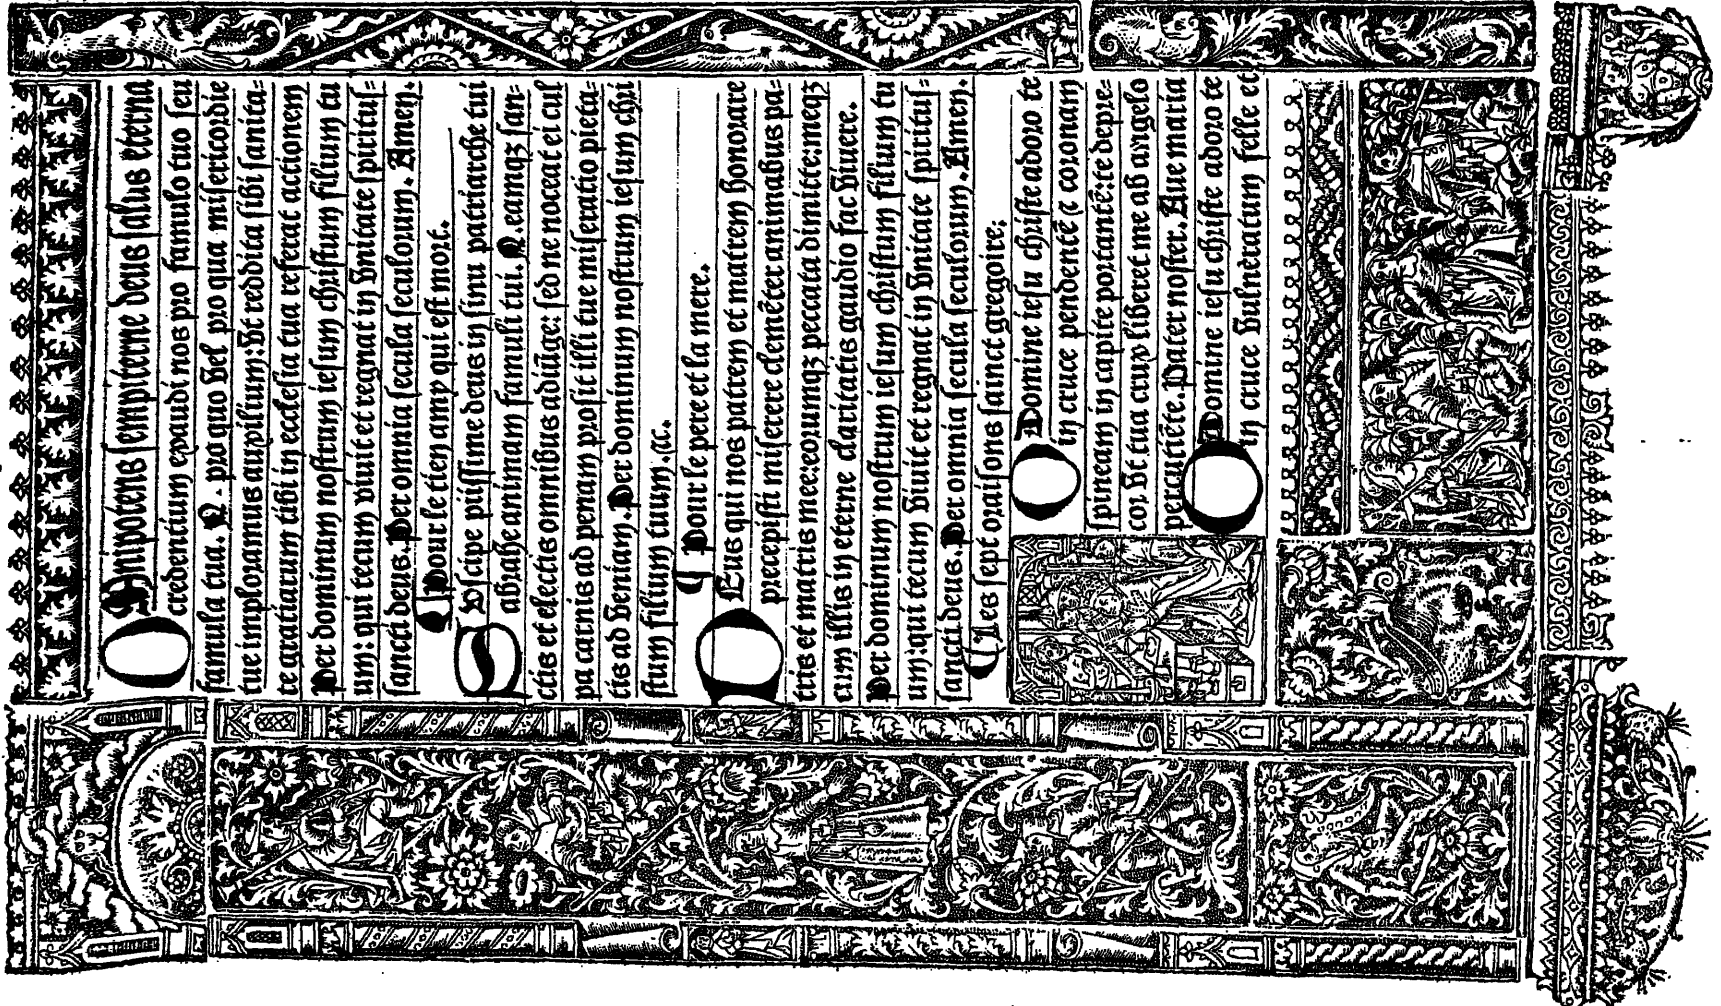 OMnipotens sempiterne deus salus eterna
credencium exaudi nos pro famulo tuo seu
famula tua. N. pro quo vel pro qua misericordie
tue imploramus auxilium: vt reddita sibi sanita-
te gratiarum tibi in ecclesia tua referat actionem
Per dominum nostrum iesum christum filium tu
um: qui tecum viuit et regnat in vnitate spiritus-
sancti deus. Per omnia secula seculorum. Amen.
¶ Pour le tien amy qui est mort.
SVscipe piissime deus in sinu patriarche tui
abrahe animam famuli tui. N. eamqz san-
ctis et electis omnibus adiūge: sed ne noceat ei cul
pa carnis ad penam prosit illi tue miseratio pieta-
tis ad veniam. Per dominum nostrum iesum chri
stum filium tuum. ⁊c.
¶ Pour le pere et la mere.
DEus qui nos patrem et matrem honorare
precepisti miserere clemēter animabus pa-
tris et matris mee: eorumqz peccata dimitte: meqz
cum illis in eterne claritatis gaudio fac viuere.
Per dominum nostrum iesum christum filium tu
um: qui tecum viuit et regnat in vnitate spiritus-
sancti deus. Per omnia secula seculorum. Amen.
¶ Les sept oraisons sainct gregoire:
ODomine iesu christe adoro te
in cruce pendentē ⁊ coronam
spineam in capite portantē: te depre-
cor vt tua crux liberet me ab angelo
percutiēte. Pater noster. Aue maria
ODomine iesu christe adoro te
in cruce vulneratum felle et